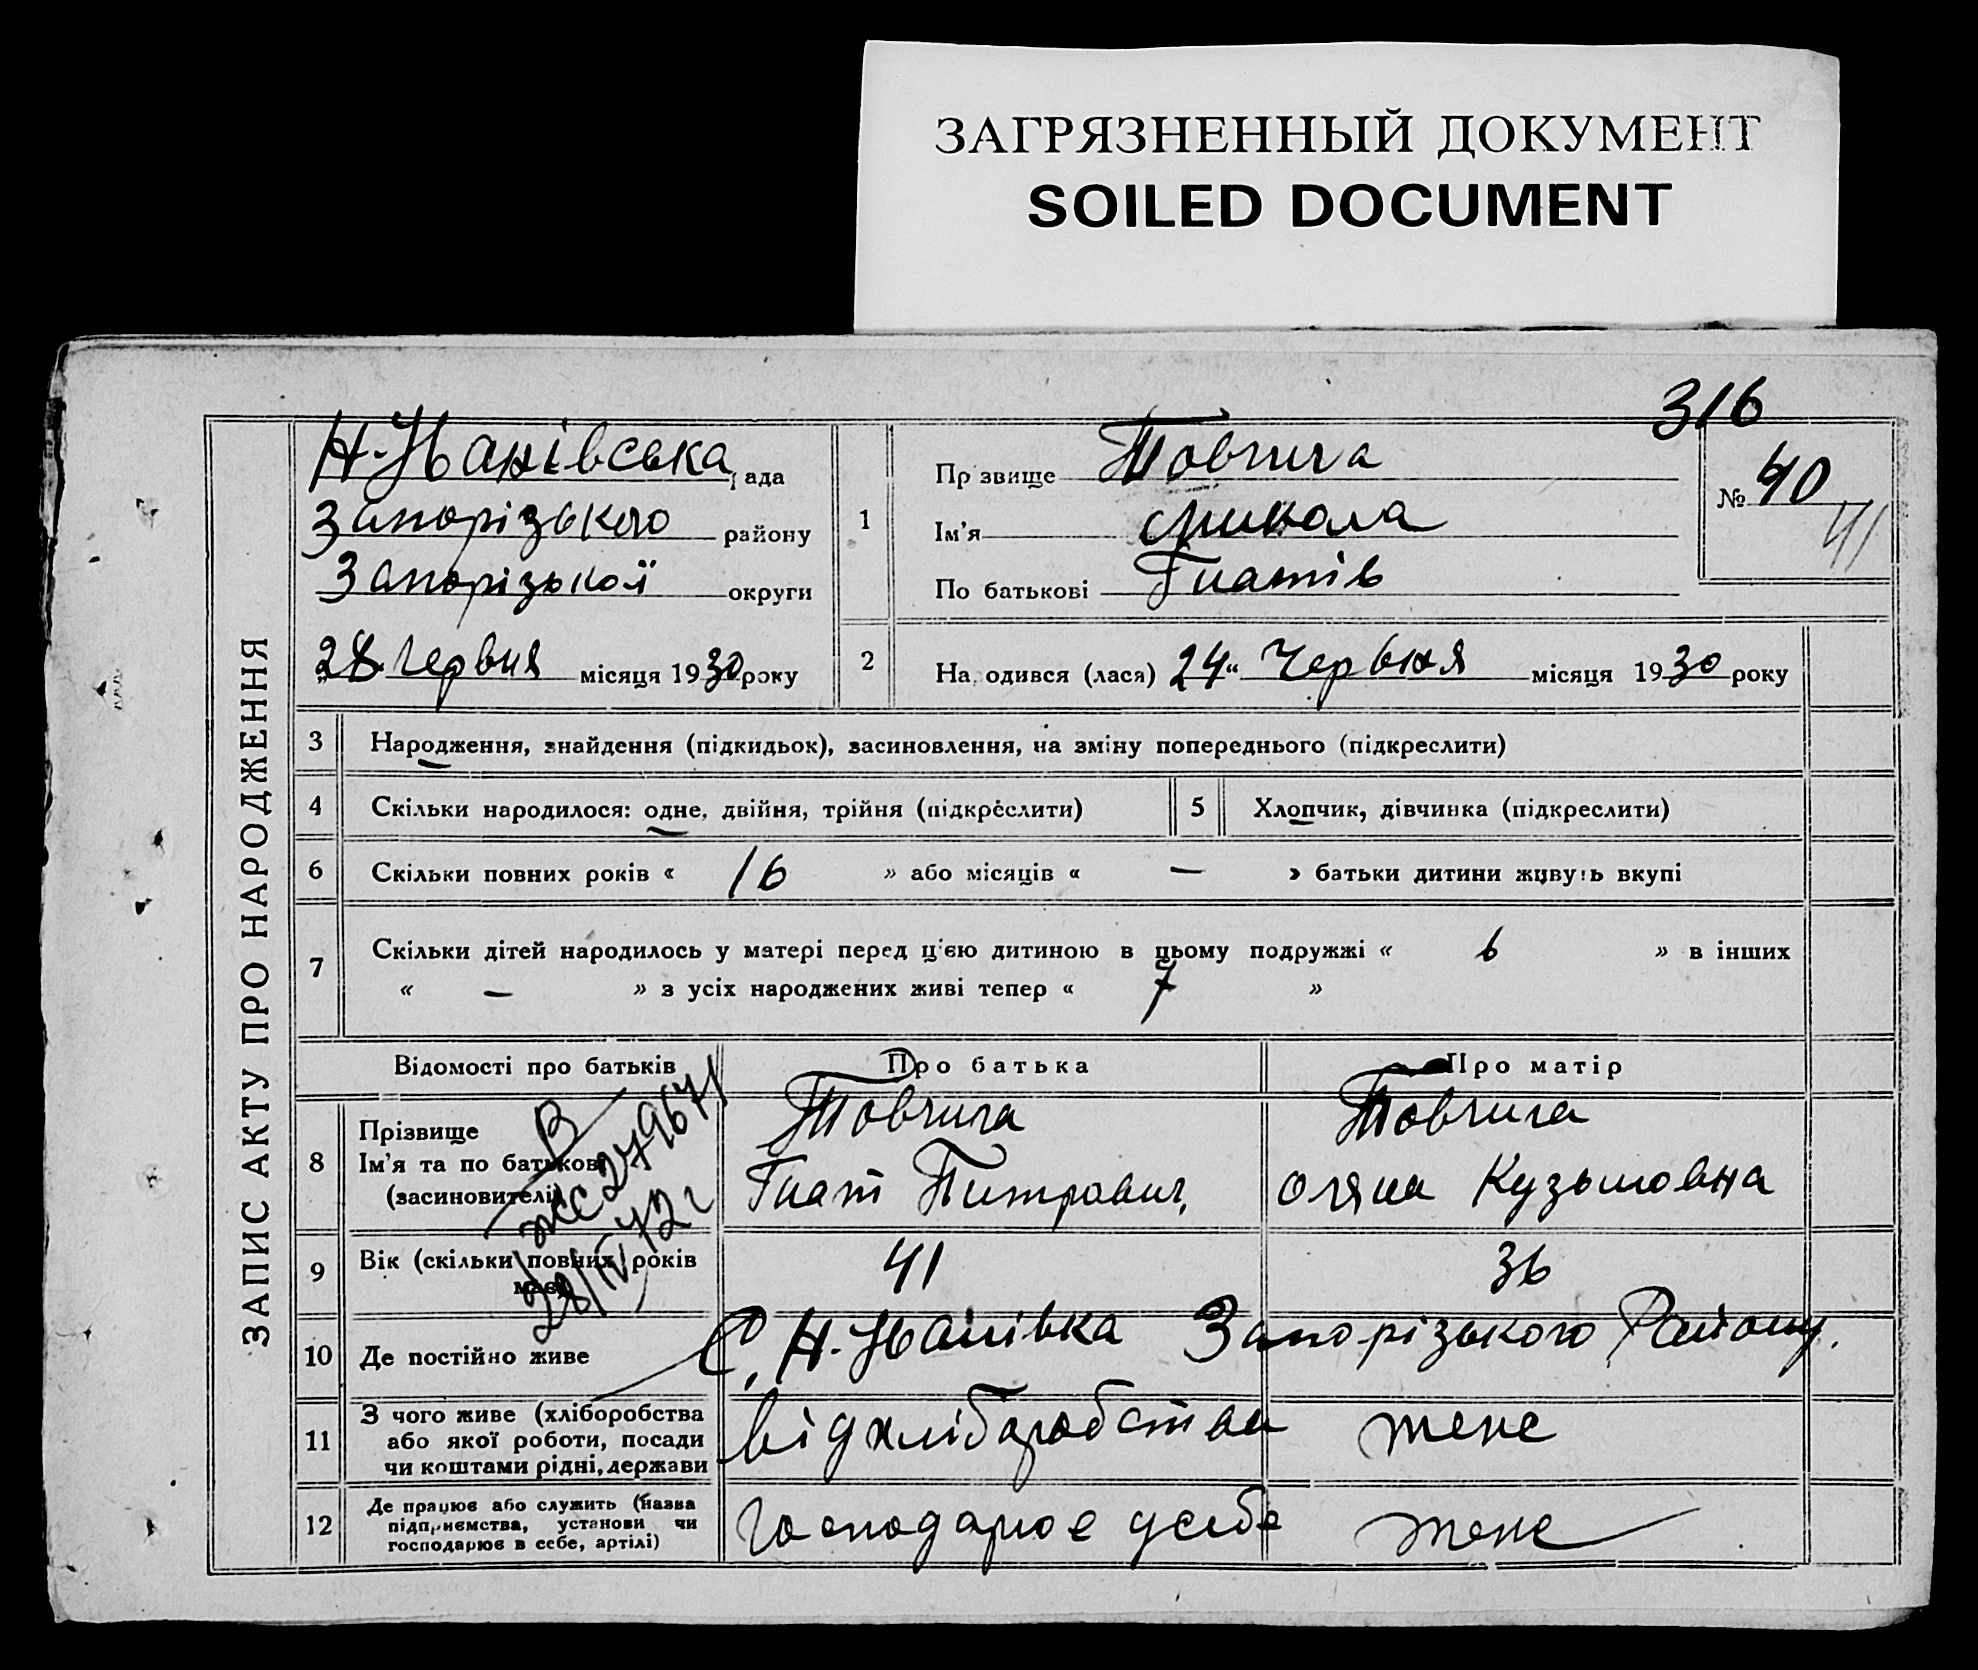 ЗАГРЯЗНЕННЫЙ ДОКУМЕНТ
SOILED DOCUMENT
316
ЗАПИС АКТУ ПРО НАРОДЖЕННЯ
рада
Запорізького району
Запорізької округи
28 Червня місяця 1930 року
1
Прізвище Товчига
Ім'я Микола
По батькові Гнатів
№ 40
41
2
Народився (лася) 24 “ Червня місяця 1930 року
3 Народження, знайдення (підкидьок), засиновлення, на зміну попереднього (підкреслити)
4 Скільки народилося: одне, двійня, трійня (підкреслити)
5 Хлопчик, дівчинка (підкреслити)
6 Скільки повних років « 16 » або місяців « — » батьки дитини живуть вкупі
7 Скільки дітей народилось у матері перед ц'єю дитиною в цьому подружжі « 6 » в інших
« — » з усіх народжених живі тепер « 7 »
Відомості про батьків
Про батька
Про матір
8 Прізвище
Ім'я та по батькові
(засиновителі)
Товчига
Гнат Питрович,
Товчига
Оляна Кузьмовна
279671
28/IV 72 г
9 Вік (скільки повних років
має)
41
36
10 Де постійно живе
С. Запорізького Району.
11 З чого живе (хліборобства
або якої роботи, посади
чи коштами рідні, держави
від хліборобства
теж
12 Де працює або служить (назва
підприємства, установи чи
господарює в себе, артілі)
Господарює у себе
теж